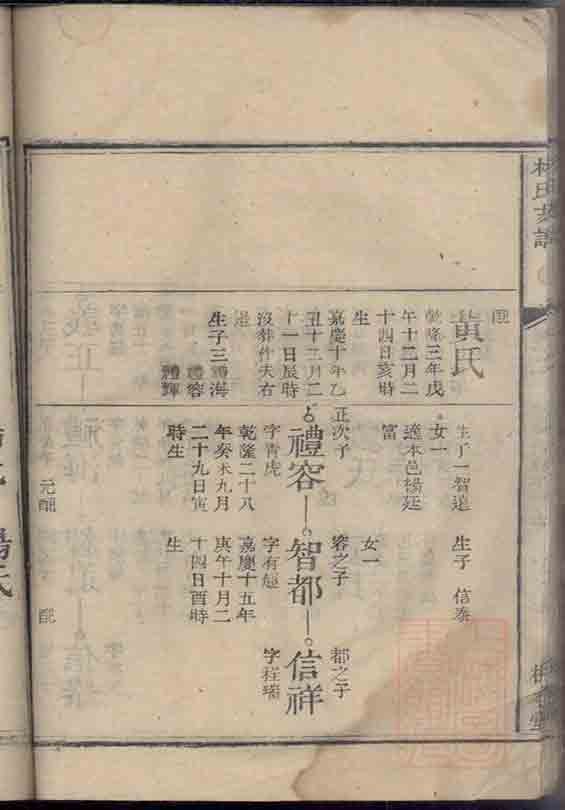 林氏支譜
配
黃氏
乾隆三年戊
午十二月二
十四日亥時
生
嘉慶十年乙
丑十二月二
十一日辰時
沒葬作夫右
邊
生子三 禮海
禮容
禮輝
生子一智遠
女一
適本邑楊廷
富
正次子
禮容
字青虎
乾隆二十八
年癸未九月
二十九日寅
時生
元配
生子 信泰
女一
容之子
智都
字有起
嘉慶十五年
庚午十月二
十四日酉時
生
配
都之子
信祥
字程瑞
楊氏